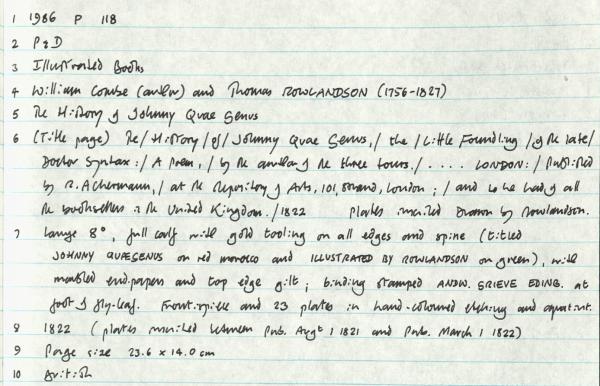 1 1986 P 118
2 P&D
3 Illustrated Books
4 William Combe (author) and Thomas ROWLANDSON (1756-1827)
5 The History of Johnny Quae Genus
6 (Title page) The/ History/ of/ Johnny Quae Genus,/ the/ Little Foundling/ of the late/
Doctor Syntax:/ A Poem,/ by the author of the three tours./ .... LONDON:/ Published
by R. Ackermann,/ at the Repository of Arts, 101, Strand, London;/ and to be had of all
the booksellers in the United Kingdom./ 1822 Plates inscribed Drawn by Rowlandson.
7 Large 8°, full calf with gold tooling on all edges and spine (titled
JOHNNY QUAEGENUS on red morocco and ILLUSTRATED BY ROWLANDSON on green), with
marbled endpapers and top edge gilt; binding stamped ANDW. GRIEVE EDINB. at
foot of fly-leaf. Frontispiece and 23 plates in hand-coloured etching and aquatint.
8 1822 (plates inscribed between Pub. Augt 1 1821 and Pub. March 1 1822)
9 Page size 23.6 x 14.0 cm
10 British